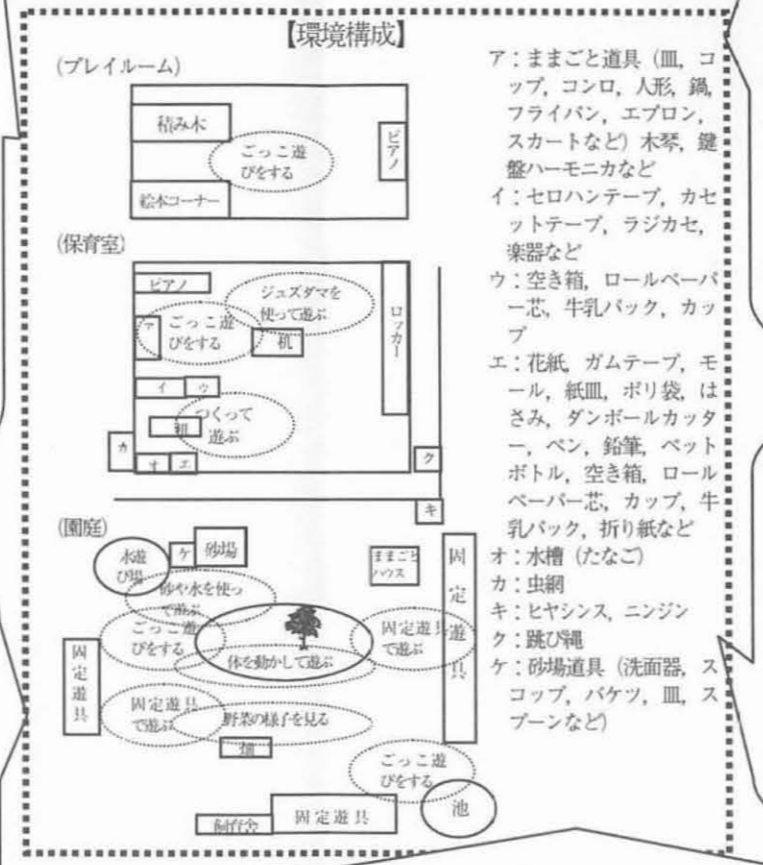 【環境構成】
(プレイルーム)
積み木
ごっこ遊
びをする
ピアノ
絵本コーナー
(保育室)
ピアノ
ジュズダマを
使って遊ぶ
ア
ごっこ遊
びをする
机
ロッカー
イ
ウ
つくって
遊ぶ
カ
オ
エ
ク
キ
(園庭)
水遊
び場
ケ
砂場
ままごと
ハウス
固定遊具
砂や水を使っ
て遊ぶ
ごっこ遊
びをする
固定遊具
で遊ぶ
体を動かして遊ぶ
固定遊具
固定遊具
で遊ぶ
野菜の様子を見る
畑
ごっこ遊
びをする
飼育舎
固定遊具
池
ア：ままごと道具（皿，コ
ップ，コンロ，人形，鍋，
フライパン，エプロン，
スカートなど）木琴，鍵
盤ハーモニカなど
イ：セロハンテープ，カセ
ットテープ，ラジカセ，
楽器など
ウ：空き箱，ロールペーパ
ー芯，牛乳パック，カッ
プ
エ：花紙，ガムテープ，モ
ール，紙皿，ポリ袋，は
さみ，ダンボールカッタ
ー，ペン，鉛筆，ペット
ボトル，空き箱，ロール
ペーパー芯，カップ，牛
乳パック，折り紙など
オ：水槽（たなご）
カ：虫網
キ：ヒヤシンス，ニンジン
ク：跳び縄
ケ：砂場道具（洗面器，ス
コップ，バケツ，皿，ス
プーンなど）